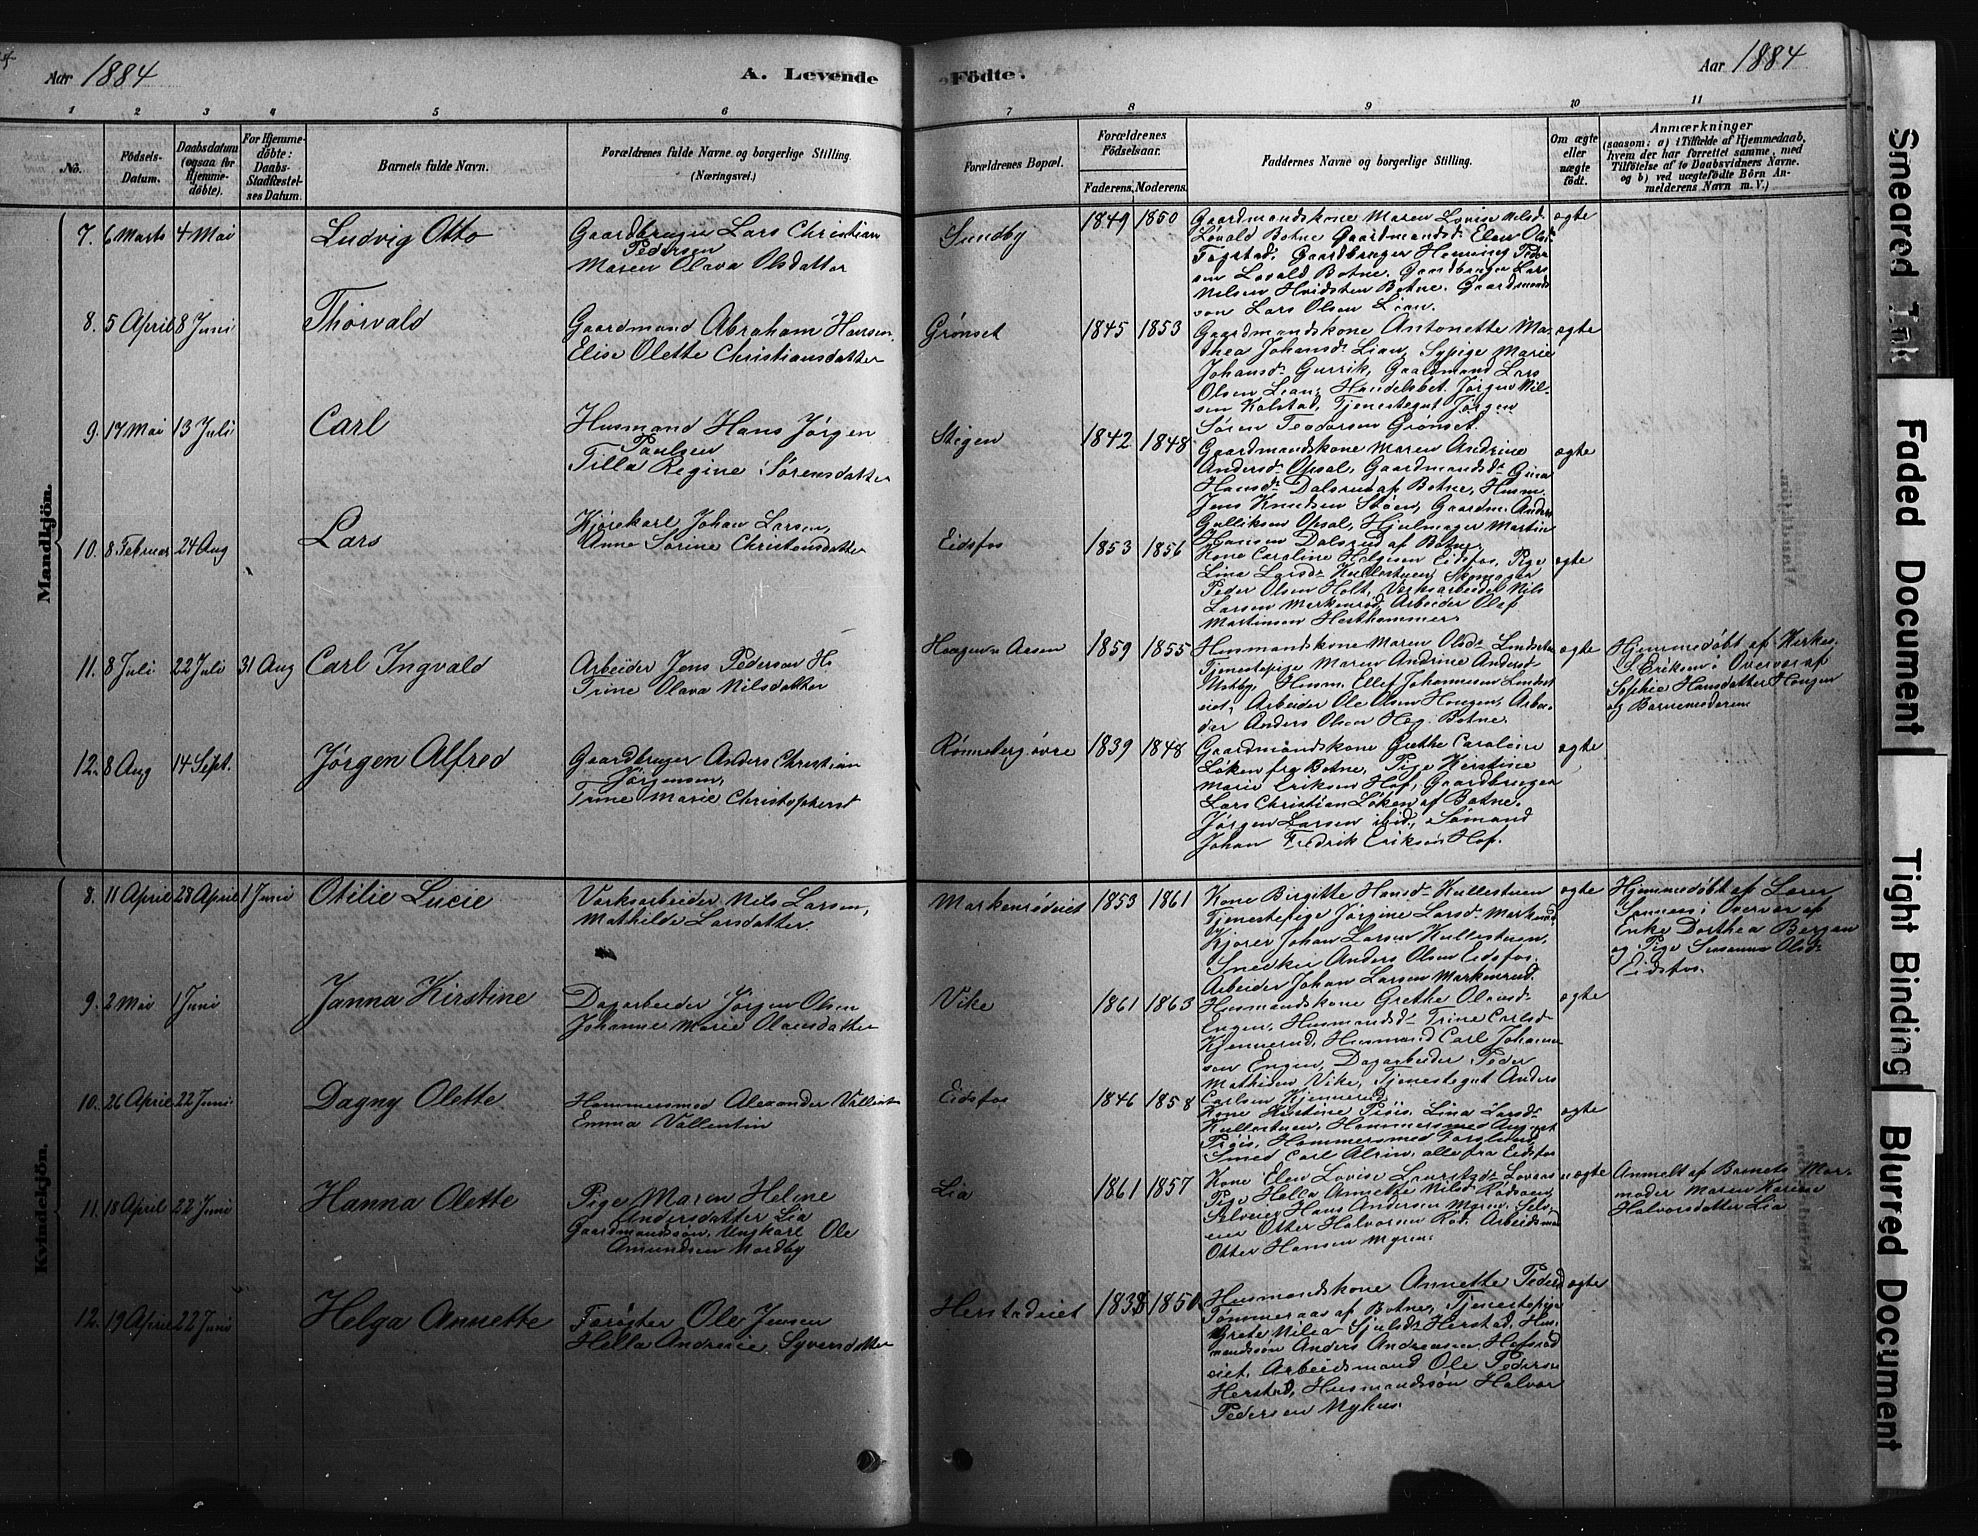 Aar 1884
A. Levende
Födte.
Aar 1884
1 2 3 4 5 6 7 8 9 10 11
No.
Födsels-
Datum.
Daabsdatum
(ogsaa for
Hjemme-
döbte).
For Hjemme-
döbte:
Daabs-
Stadfæstel-
ses Datum.
Barnets fulde Navn.
Forældrenes fulde Navne og borgerlige Stilling.
(Næringsvei.)
Forældrenes Bopæl.
Forældrenes
Födselsaar.
Faderens.
Moderens.
Faddernes Navne og borgerlige Stilling.
Om ægte
eller
uægte
födt.
Anmærkninger
(saasom: a) i Tilfælde af Hjemmedaab,
hvem der har forrettet samme, med
Tilföielse af to Daabsvidners Navne.
og b) ved uægtefödte Börn An-
melderens Navn m. V.)
Mandkjön.
7. 6 Marts 4 Mai
Ludvig Otto
Gaardbruger Lars Christian
Pedersen
Maren Olava Olsdatter
Sundby
1849 1850
Gaardmandskone Maren Lovise Nilsd.
Løvald Botne Gaardmandsd. Elen Ols
Fogstad, Gaardbruger Henning Peder
sen Lovald Botne, Gaardbruger Lars
Nilsen Hvidsten Botne. Gaardmands
søn Lars Olsen Lian.
ægte
8. 5 April 8 Juni
Thorvald
Gaardmand Abraham Hansen,
Elise Olette Christiansdatter
Grønset
1845 1853
Gaardmandskone Antonette Ma-
thea Johansd. Lian, Sypige Marie
Johansd. Gurrik, Gaardmand Lars
Olsen Lian, Handelsbet. Jørgen Nil-
sen Kolstad, Tjenestegut Jørgen
Søren Teodorsen Grønset.
ægte
9. 17 Mai 13 Juli
Carl
Husmand Hans Jørgen
Paulsen
Tilla Regine Sørensdatter
Stigen
1842 1848
Gaardmandskone Maren Andrine
Andersd. Opsal, Gaardmandsd. Gina
Hansd. Dalsrud af Botne, Husm.
Jens Knudsen Støen, Gaardm. Anders
Gulliksen Opsal, Hjulmager Martin
Hansen Dalsrud af Botne
ægte
10. 8 Februar 24 Aug
Lars
Kjørekarl Johan Larsen,
Anne Sorine Christensdatter
Eidsfos
1853 1856
Kone Caroline Helgesen Eidsfos, Pige
Lina Larsd. Kullestuen, Skomager
Peder Olsen Holt, Verksarbeider Nils
Larsen Markenrød, Arbeider Olaf
Martinsen Hesthammer.
ægte
11. 8 Juli 22 Juli 31 Aug
Carl Ingvald
Arbeider Jens Pedersen Ho
Trine Olava Nilsdatter
Haugen Aasen
1859 1855
Husmandskone Maren Olsd. Lindset
Tjenestepige Maren Andrine Andersd.
Husm. Ellef Johannesen Lindset
eiet, Arbeider Ole Olsen Hougen, Arbei-
der Anders Olsen Heg Botne.
ægte
Hjemmedøbt af Kirkes.
S. Eriksen i Overvær af
Sophie Hansdatter Hougen
og Barnemoderen
12. 8 Aug 14 Sept.
Jørgen Alfred
Gaardbruger Anders Christian
Jørgensen,
Trine Marie Christophersd
Rønneberg øvre
1839 1848
Gaardmandskone Grethe Caroline
Løken fra Botne, Pige Kerstine
Marie Eriksen Hof, Gaardbruger
Lars Christian Løken af Botne,
Jørgen Larsen ibid, Sømand
Johan Fredrik Eriksen Hof.
ægte
Kvindekjön.
8. 11 April 28 April 1 Juni
Otilie Lucie
Værksarbeider Nils Larsen,
Mathilde Larsdatter.
Markenrødeiet
1853 1861
Kone Birgitte Hansd. Kullestuen
Tjenestepige Jørgine Larsd. Markenrud,
Kjører Johan Larsen Kullestuen,
Snedker Anders Olsen Eidsfos.
Arbeider Johan Larsen Markenrud.
ægte
Hjemmedøbt af Lærer
Sannes i Overvær af
Enke Dorthea Bergan
og Pige Susanna Olsd.
Eidsfos.
9. 2 Mai 1 Juni
Janna Kirstine
Dagarbeider Jørgen Olsen
Johanne Marie Olausdatter
Vike
1861 1863
Husmandskone Grethe Olausd.
Engen, Husmandsd. Trine Carlsd
Kjennerud, Husmand Carl Johannes
sen Engen, Dagarbeider Peder
Mathisen Vike, Tjenestegut Anders
Carlsen Kjennerud
ægte
10. 26 April 22 Juni
Dagny Olette
Hammersmed Alexander Vallent
Emma Vallentin
Eidsfos
1846 1858
Kone Kirstine Lina Larsd.
Kullestuen, Hammersmed August
Hammersmed Forslund,
Smed Carl Alrin, alle fra Eidsfos
ægte
11. 18 April 22 Juni
Hanna Olette
Pige Maren Helene
Andersdatter Lia
Gaardmandssøn, Ungkarl Ole
Amundsen Nordby
Lia
1861 1857
Kone Elen Lovise
Pige Hella Annette Nilsd.
Selveier Hans Andersen Myren, Selv-
eier Otter Halvorsen Rød, Arbeidsmd
Otter Hansen Myren.
uægte
Anmeldt af Barnets Mor-
moder Maren Karine
Halvorsdatter Lia
12. 19 April 22 Juni
Helga Annette
Forøgter Ole Jensen
Hella Andreie Syversdatter
Herstadeiet
1838 1850
Husmandskone Annette Peders
Tømmeraas af Botne, Tjenestepige
Grete Milia Sjulsd. Herstad, Hus-
mandssøn Anders Andreassen Hofsrud
eiet, Arbeidsmand Ole Pedersen
Herstad, Husmandssøn Halvor
Pedersen Myhus
ægte
Smeared Ink
Faded Document
Tight Binding
Blurred Document